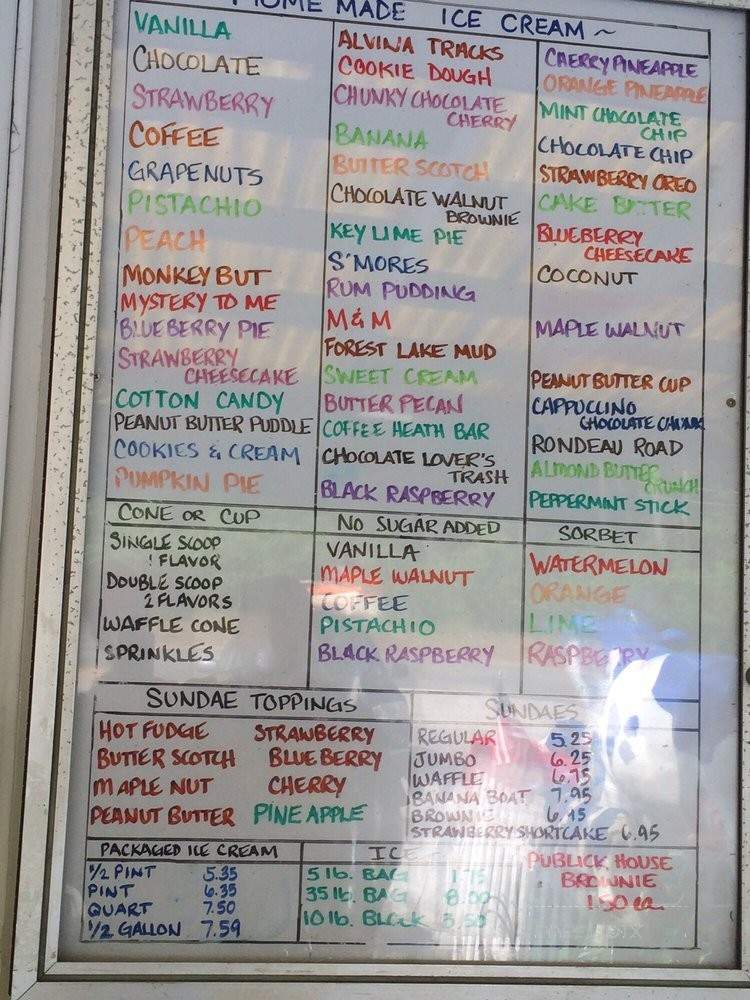 HOME MADE ICE CREAM ~
VANILLA
CHOCOLATE
STRAWBERRY
COFFEE
GRAPENUTS
PISTACHIO
PEACH
MONKEY BUT
MYSTERY TO ME
BLUEBERRY PIE
STRAWBERRY
CHEESECAKE
COTTON CANDY
PEANUT BUTTER PUDDLE
COOKIES & CREAM
PUMPKIN PIE
ALVINA TRACKS
COOKIE DOUGH
CHUNKY CHOCOLATE
CHERRY
BANANA
BUTTER SCOTCH
CHOCOLATE WALNUT
BROWNIE
KEY LIME PIE
S'MORES
RUM PUDDING
M&M
FOREST LAKE MUD
SWEET CREAM
BUTTER PECAN
COFFEE HEATH BAR
CHOCOLATE LOVER'S
TRASH
BLACK RASPBERRY
CHERRY PINEAPPLE
ORANGE PINEAPPLE
MINT CHOCOLATE
CHIP
CHOCOLATE CHIP
STRAWBERRY OREO
CAKE BATTER
BLUEBERRY
CHEESECAKE
COCONUT
MAPLE WALNUT
PEANUT BUTTER CUP
CAPPUCCINO
CHOCOLATE CHUNK
RONDEAU ROAD
ALMOND BUTTER
CRUNCH
PEPPERMINT STICK
CONE OR CUP
SINGLE SCOOP
1 FLAVOR
DOUBLE SCOOP
2 FLAVORS
WAFFLE CONE
SPRINKLES
NO SUGAR ADDED
VANILLA
MAPLE WALNUT
COFFEE
PISTACHIO
BLACK RASPBERRY
SORBET
WATERMELON
ORANGE
LIME
RASPBERRY
SUNDAE TOPPINGS
HOT FUDGE STRAWBERRY
BUTTER SCOTCH BLUEBERRY
MAPLE NUT CHERRY
PEANUT BUTTER PINEAPPLE
SUNDAES
REGULAR 5.25
JUMBO 6.25
WAFFLE 6.75
BANANA BOAT 7.95
BROWNIE
STRAWBERRY SHORTCAKE 6.95
PACKAGED ICE CREAM
1/2 PINT 5.35
PINT 6.35
QUART 7.50
1/2 GALLON 7.59
ICE
5 lb. BAG
35 lb. BAG 8.00
10 lb. BLOCK
PUBLICK HOUSE
BROWNIE
1.50 ea